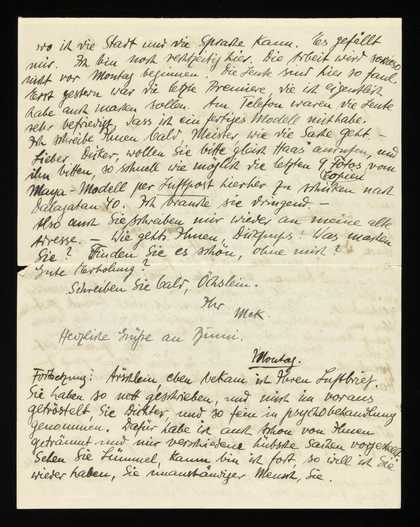 wo ich die Stadt und die Sprache kann. Es gefällt
mir. Ich bin noch rechtzeitig hier. Die Arbeit wird sowieso
nicht vor Montag beginnen. Die Leute sind hier so faul.
Erst gestern war die letzte Premiere, die ich eigentlich
habe auch machen sollen. Am Telefon waren die Leute
sehr befriedigt, dass ich ein fertiges Modell mithabe.
Ich schreibe Ihnen bald, Meister wie die Sache geht –
Lieber, Dicker, wollen Sie bitte gleich Haas anrufen, und
ihn bitten, so schnell wie möglich die letzten 9 Fotos vom
Copien
Maya-Modell per Luftpost hierher zu schicken nach
Dalagatan 40. Ich brauche sie dringend –
Also auch Sie schreiben mir wieder an meine alte
Adresse. – Wie gehts Ihnen, Was machen
Sie? Finden Sie es schön, ohne mich?
Gute Erholung?
Schreiben Sie bald, Öchslein.
Ihr
Mek.
Herzliche Grüße an
Montag.
Fortsetzung: eben bekam ich Ihren Luftbrief.
Sie haben so nett geschrieben, und mich im voraus
getröstet, Sie Dicker, und so fein in psychobehandlung
genommen. Dafür habe ich auch schon von Ihnen
geträumt und mir verschiedene hübsche Sachen vorgestellt.
Sehen Sie Lümmel, kaum bin ich fort, so will ich Sie
wieder haben, Sie unanständiger Mensch, Sie.